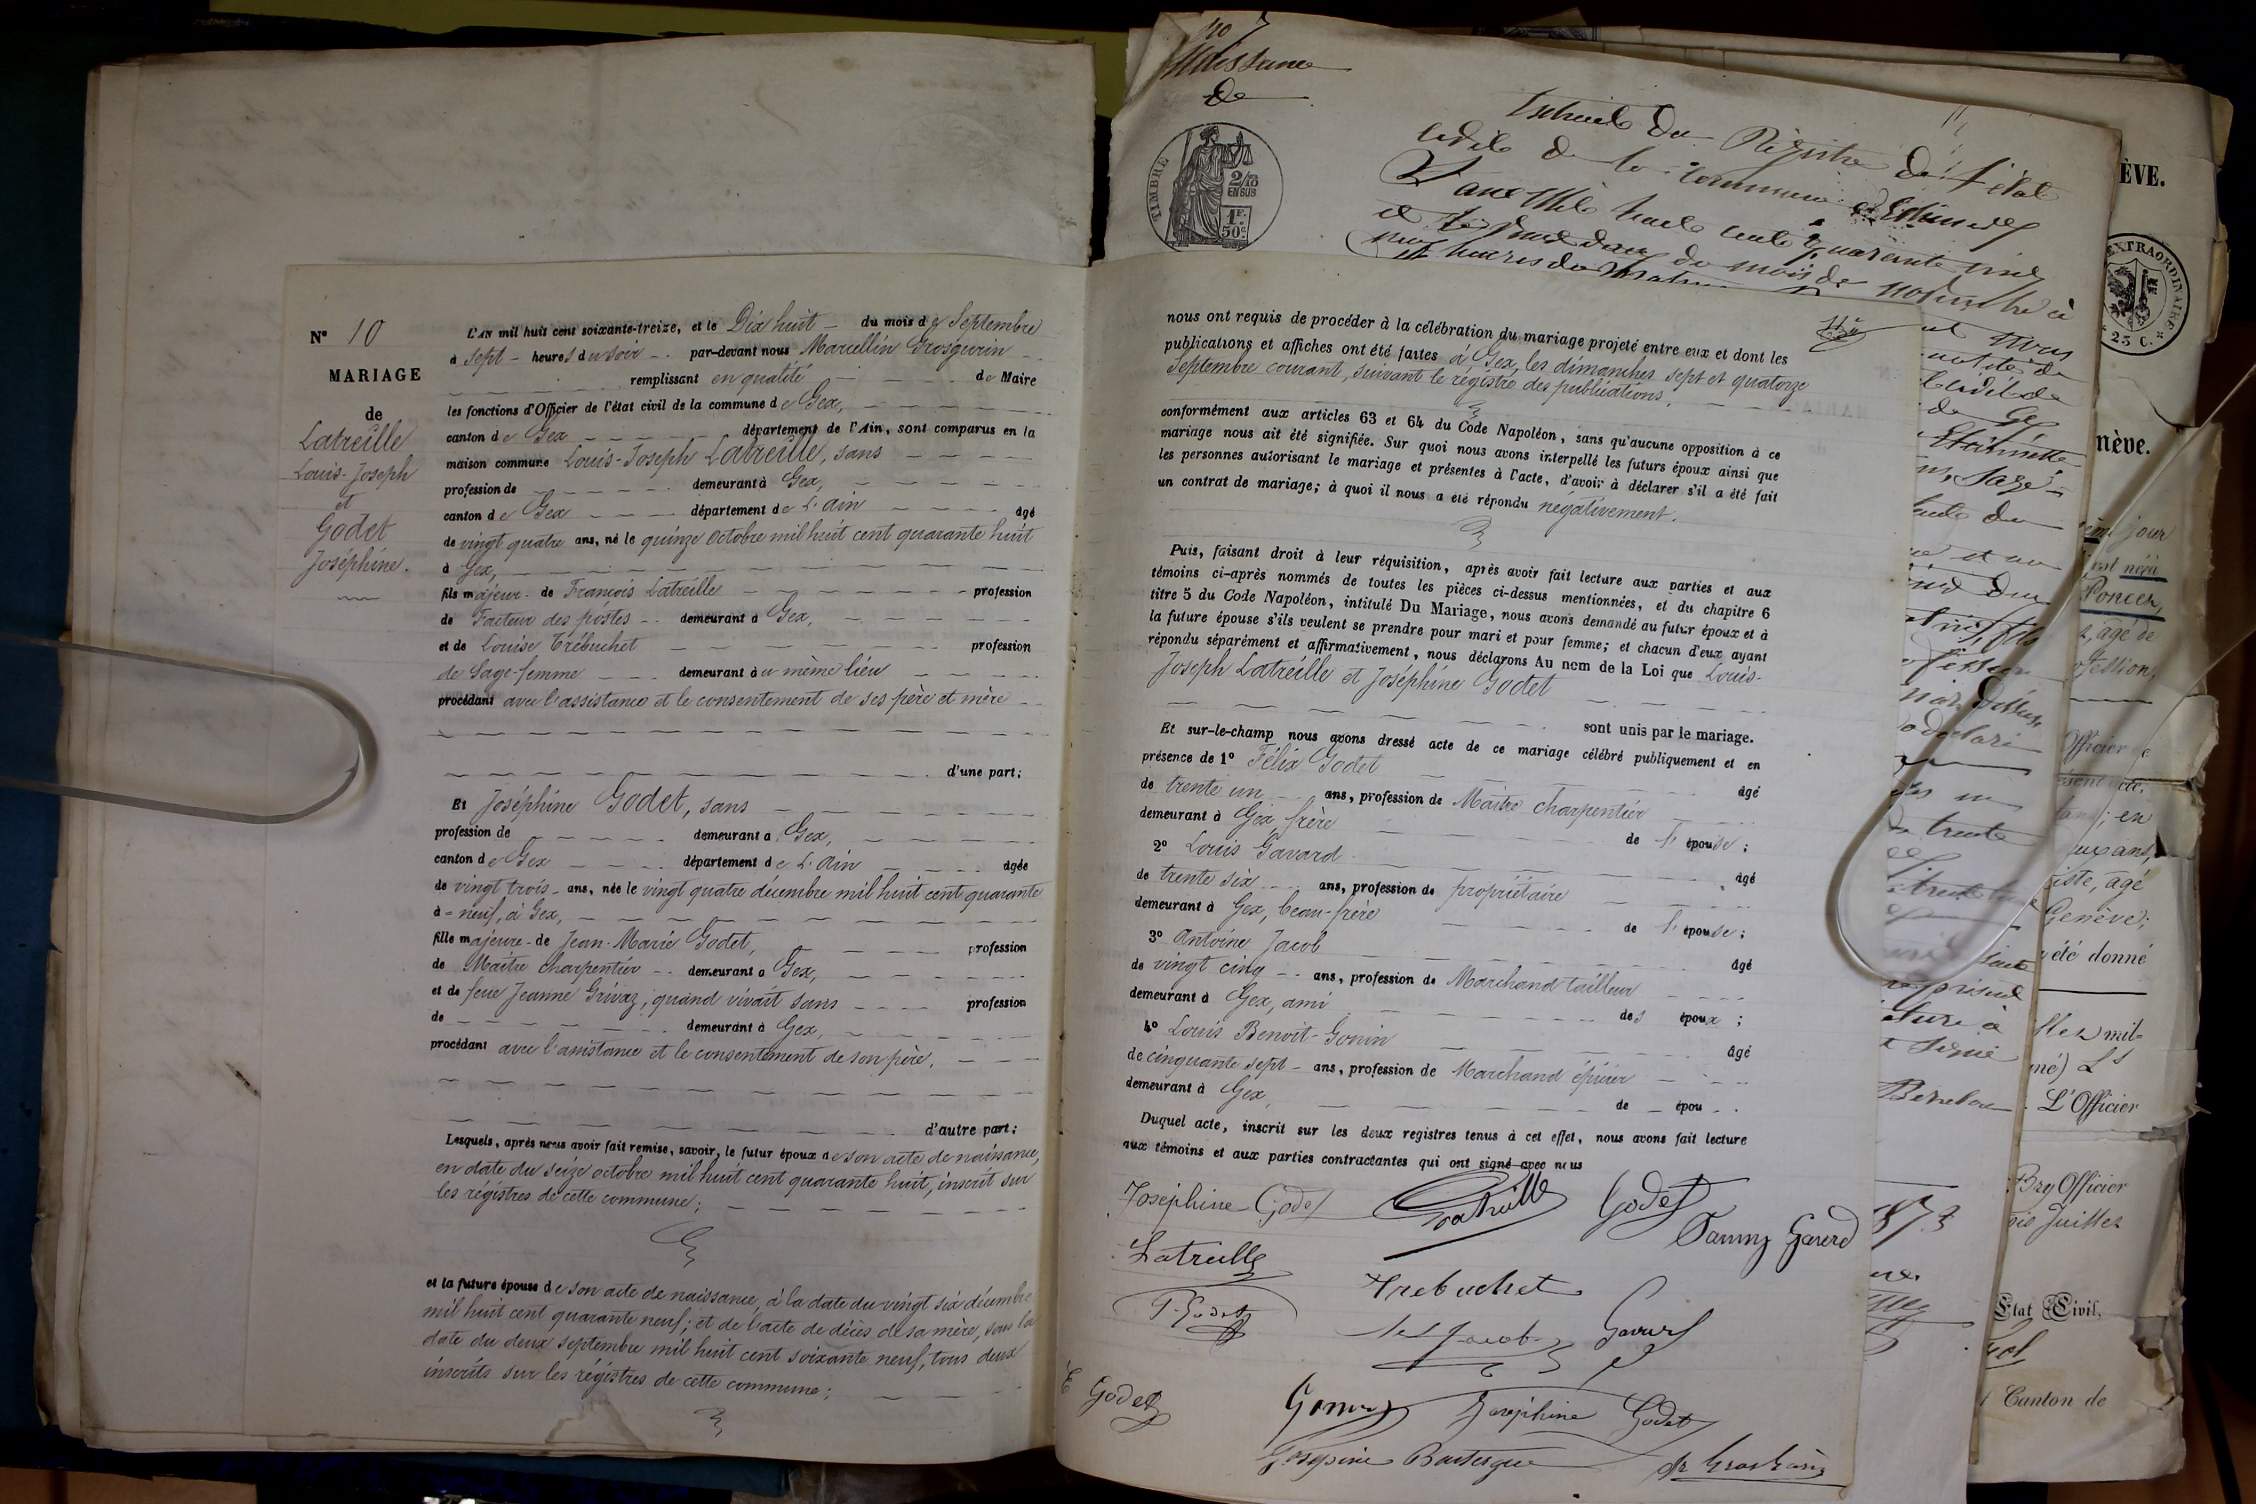 N° 10
MARIAGE
de
Latreille
Louis-Joseph
et
Godet
Joséphine.
L'AN mil huit cent soixante-treize, et le Dix huit du mois de Septembre
à sept heures du soir par-devant nous Marcellin Grosgurin
remplissant en qualité de Maire
les fonctions d'Officier de l'état civil de la commune de Gex,
canton de Gex département de l'Ain, sont comparus en la
maison commune Louis-Joseph Latreille, sans
profession de demeurant à Gex,
canton de Gex département de L'Ain âgé
de vingt quatre ans, né le quinze Octobre mil huit cent quarante huit
à Gex,
fils majeur de François Latreille profession
de Facteur des postes demeurant à Gex,
et de Louise Trébuchet profession
de Sage-femme demeurant au même lieu
procédant avec l'assistance et le consentement de ses père et mère
d'une part;
Et Joséphine Godet, sans
profession de demeurant à Gex,
canton de Gex département de L'Ain âgée
de vingt trois ans, née le vingt quatre décembre mil huit cent quarante
à = neuf, à Gex,
fille majeure de Jean-Marie Godet, profession
de Maître charpentier demeurant à Gex,
et de feue Jeanne Grivaz, quand vivait sans profession
de demeurant à Gex,
procédant avec l'assistance et le consentement de son père.
d'autre part;
Lesquels, après nous avoir fait remise, savoir, le futur époux de son acte de naissance,
en date du seize octobre mil huit cent quarante huit, inscrit sur
les régistres de cette commune;
et la future épouse de son acte de naissance, à la date du vingt six décembre
mil huit cent quarante neuf; et de l'acte de décès de sa mère, sous la
date du deux septembre mil huit cent soixante neuf, tous deux
inscrits sur les régistres de cette commune;
nous ont requis de procéder à la célébration du mariage projeté entre eux et dont les
publications et affiches ont été faites à Gex, les dimanches sept et quatorze
Septembre courant, suivant le régistre des publications.
conformément aux articles 63 et 64 du Code Napoléon, sans qu'aucune opposition à ce
mariage nous ait été signifiée. Sur quoi nous avons interpellé les futurs époux ainsi que
les personnes autorisant le mariage et présentes à l'acte, d'avoir à déclarer s'il a été fait
un contrat de mariage; à quoi il nous a été répondu négativement.
Puis, faisant droit à leur réquisition, après avoir fait lecture aux parties et aux
témoins ci-après nommés de toutes les pièces ci-dessus mentionnées, et du chapitre 6
titre 5 du Code Napoléon, intitulé Du Mariage, nous avons demandé au futur époux et à
la future épouse s'ils veulent se prendre pour mari et pour femme; et chacun d'eux ayant
répondu séparément et affirmativement, nous déclarons Au nom de la Loi que Louis-
Joseph Latreille et Joséphine Godet
sont unis par le mariage.
Et sur-le-champ nous avons dressé acte de ce mariage célébré publiquement et en
présence de 1° Félix Godet âgé
de trente un ans, profession de Maître charpentier
demeurant à Gex, frère de l'épouse;
2° Louis Gavard âgé
de trente six ans, profession de propriétaire
demeurant à Gex, beau-frère de l'épouse;
3° Antoine Jacob âgé
de vingt cinq ans, profession de Marchand tailleur
demeurant à Gex, ami des époux;
4° Louis Benoit-Gonin âgé
de cinquante sept ans, profession de Marchand épicier
demeurant à Gex, de épou
Duquel acte, inscrit sur les deux registres tenus à cet effet, nous avons fait lecture
aux témoins et aux parties contractantes qui ont signé avec nous
Joséphine Godet Latreille Godet
Fanny Gavard
Latreille Trebuchet
Godet Jacob Gavard
Godet Gonin Joséphine Godet
Naissance
de
TIMBRE
2/10
EN SUS
1F.
50c.
Extrait du Régistre de l'état
civil de la commune
L'an Mil huit cent quarante cinq
du mois de novembre à
neuf heures du Matin
ÈVE.
EXTRAORDINAIRE
25 C.
nève.
jour
Poncet,
âgé de
Officier
en
ans,
âgé
Genève;
été donné
mil-
L'Officier
Bry Officier
Juillet
État Civil,
Canton de